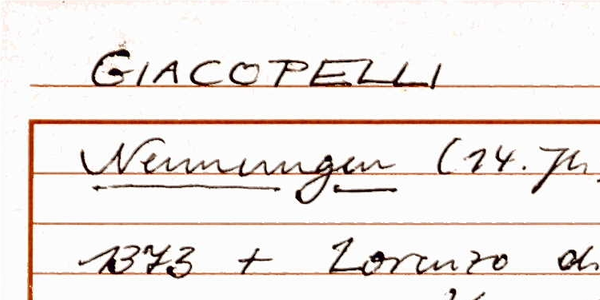 GIACOPELLI
Nennungen (14. Jh.
1373 + Lorenzo di